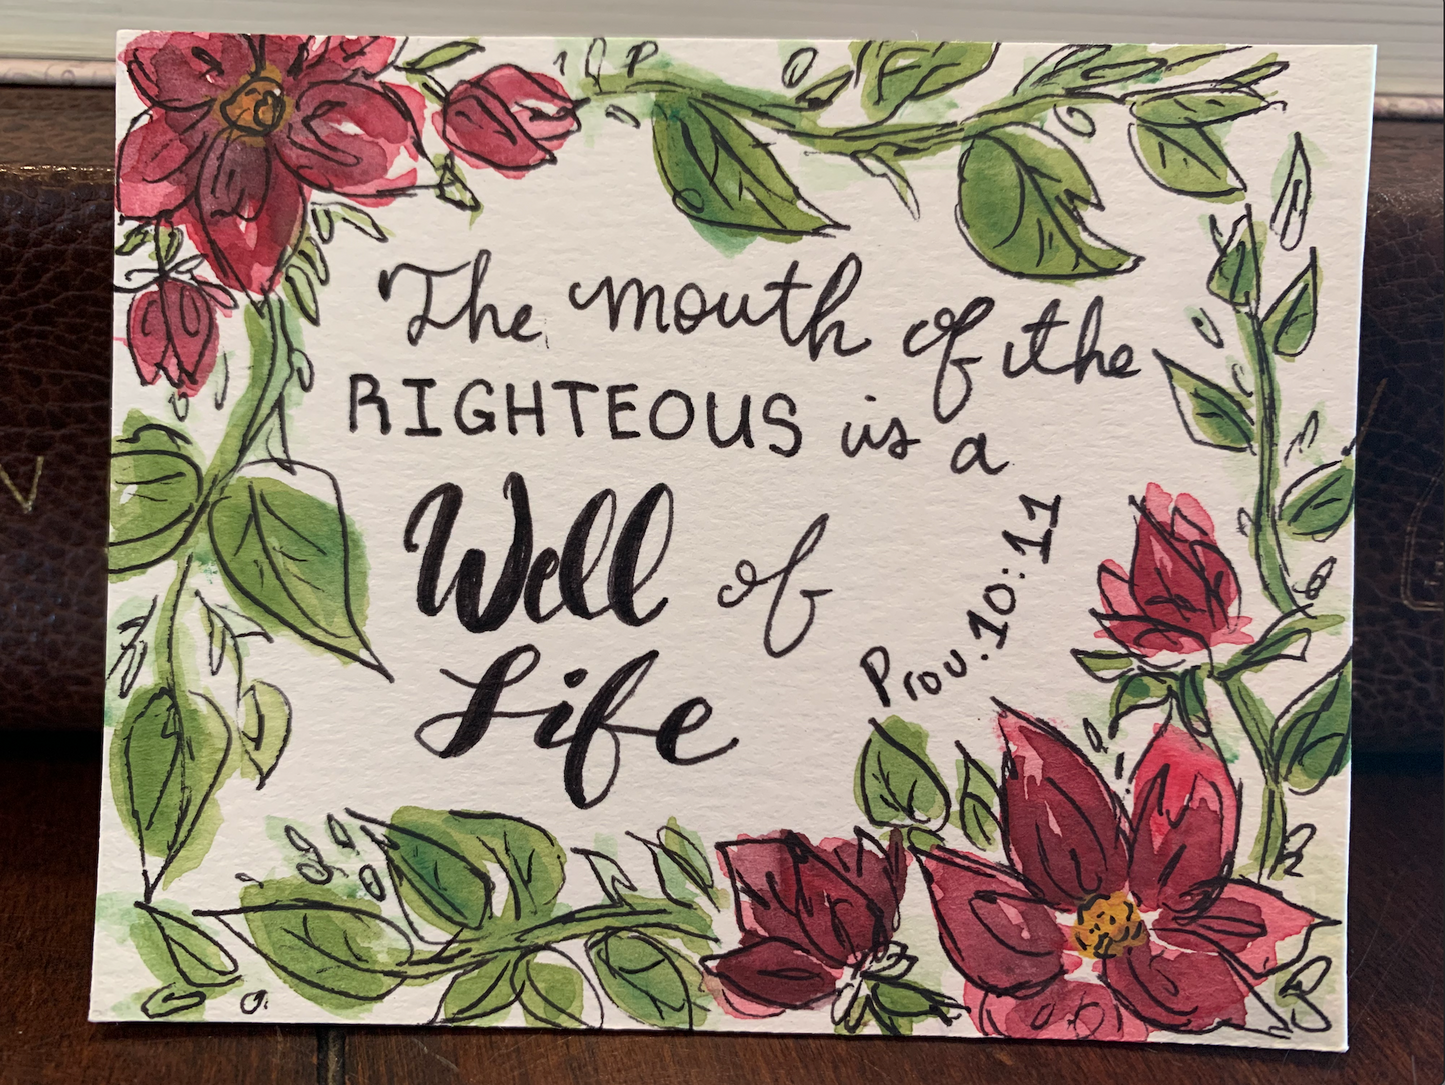 The mouth of the
RIGHTEOUS is a
Well of
Life
Prov. 10:11
V